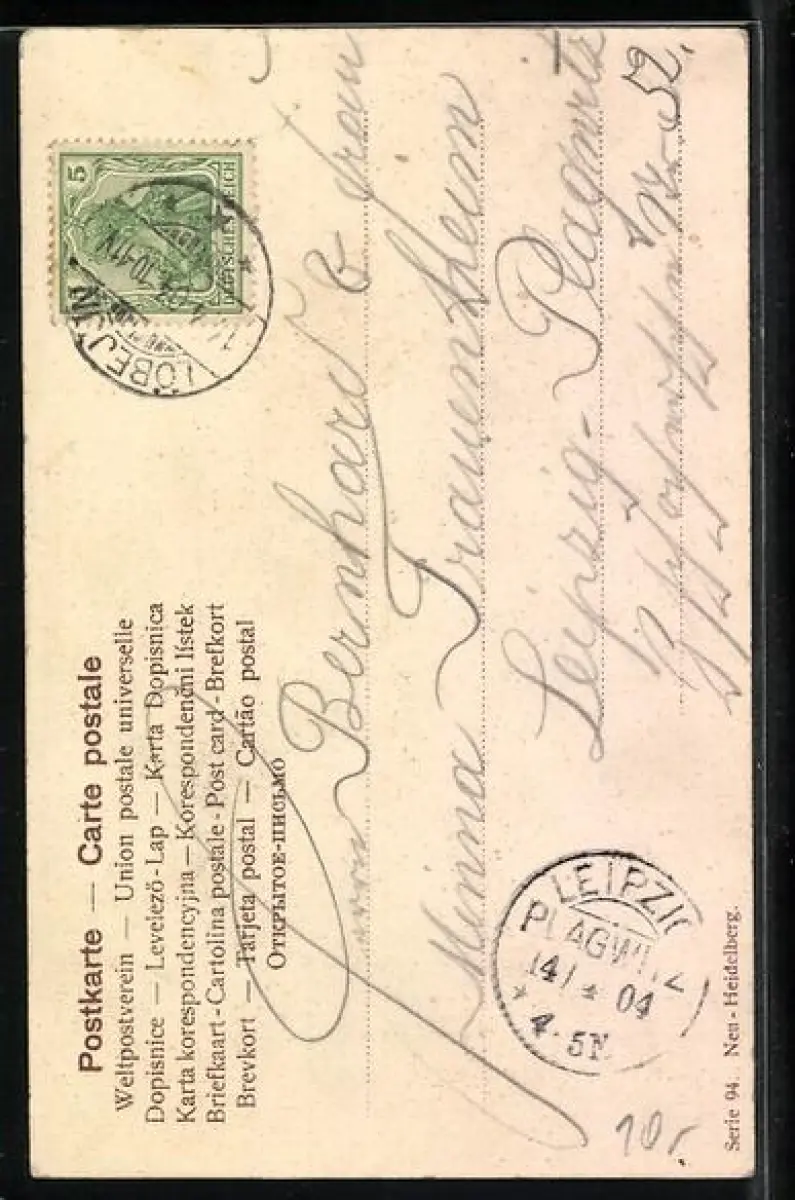 Postkarte — Carte postale
Weltpostverein — Union postale universelle
Dopisnice — Levelező-Lap — Karta Dopisnica
Karta korespondencyjna — Korespondenční lístek
Briefkaart - Cartolina postale - Post card - Brefkort
Brevkort — Tarjeta postal — Cartão postal
ОТКРЫТОЕ-ПИСЬМО
5
DEUTSCHES REICH
LÖBEJÜN
10-11V
Bernhard & Frau
Minna Frauenheim
Leipzig-Plagwitz
52.
LEIPZIG
PLAGWITZ
14 04
4-5N
10.
Serie 94. Neu-Heidelberg.